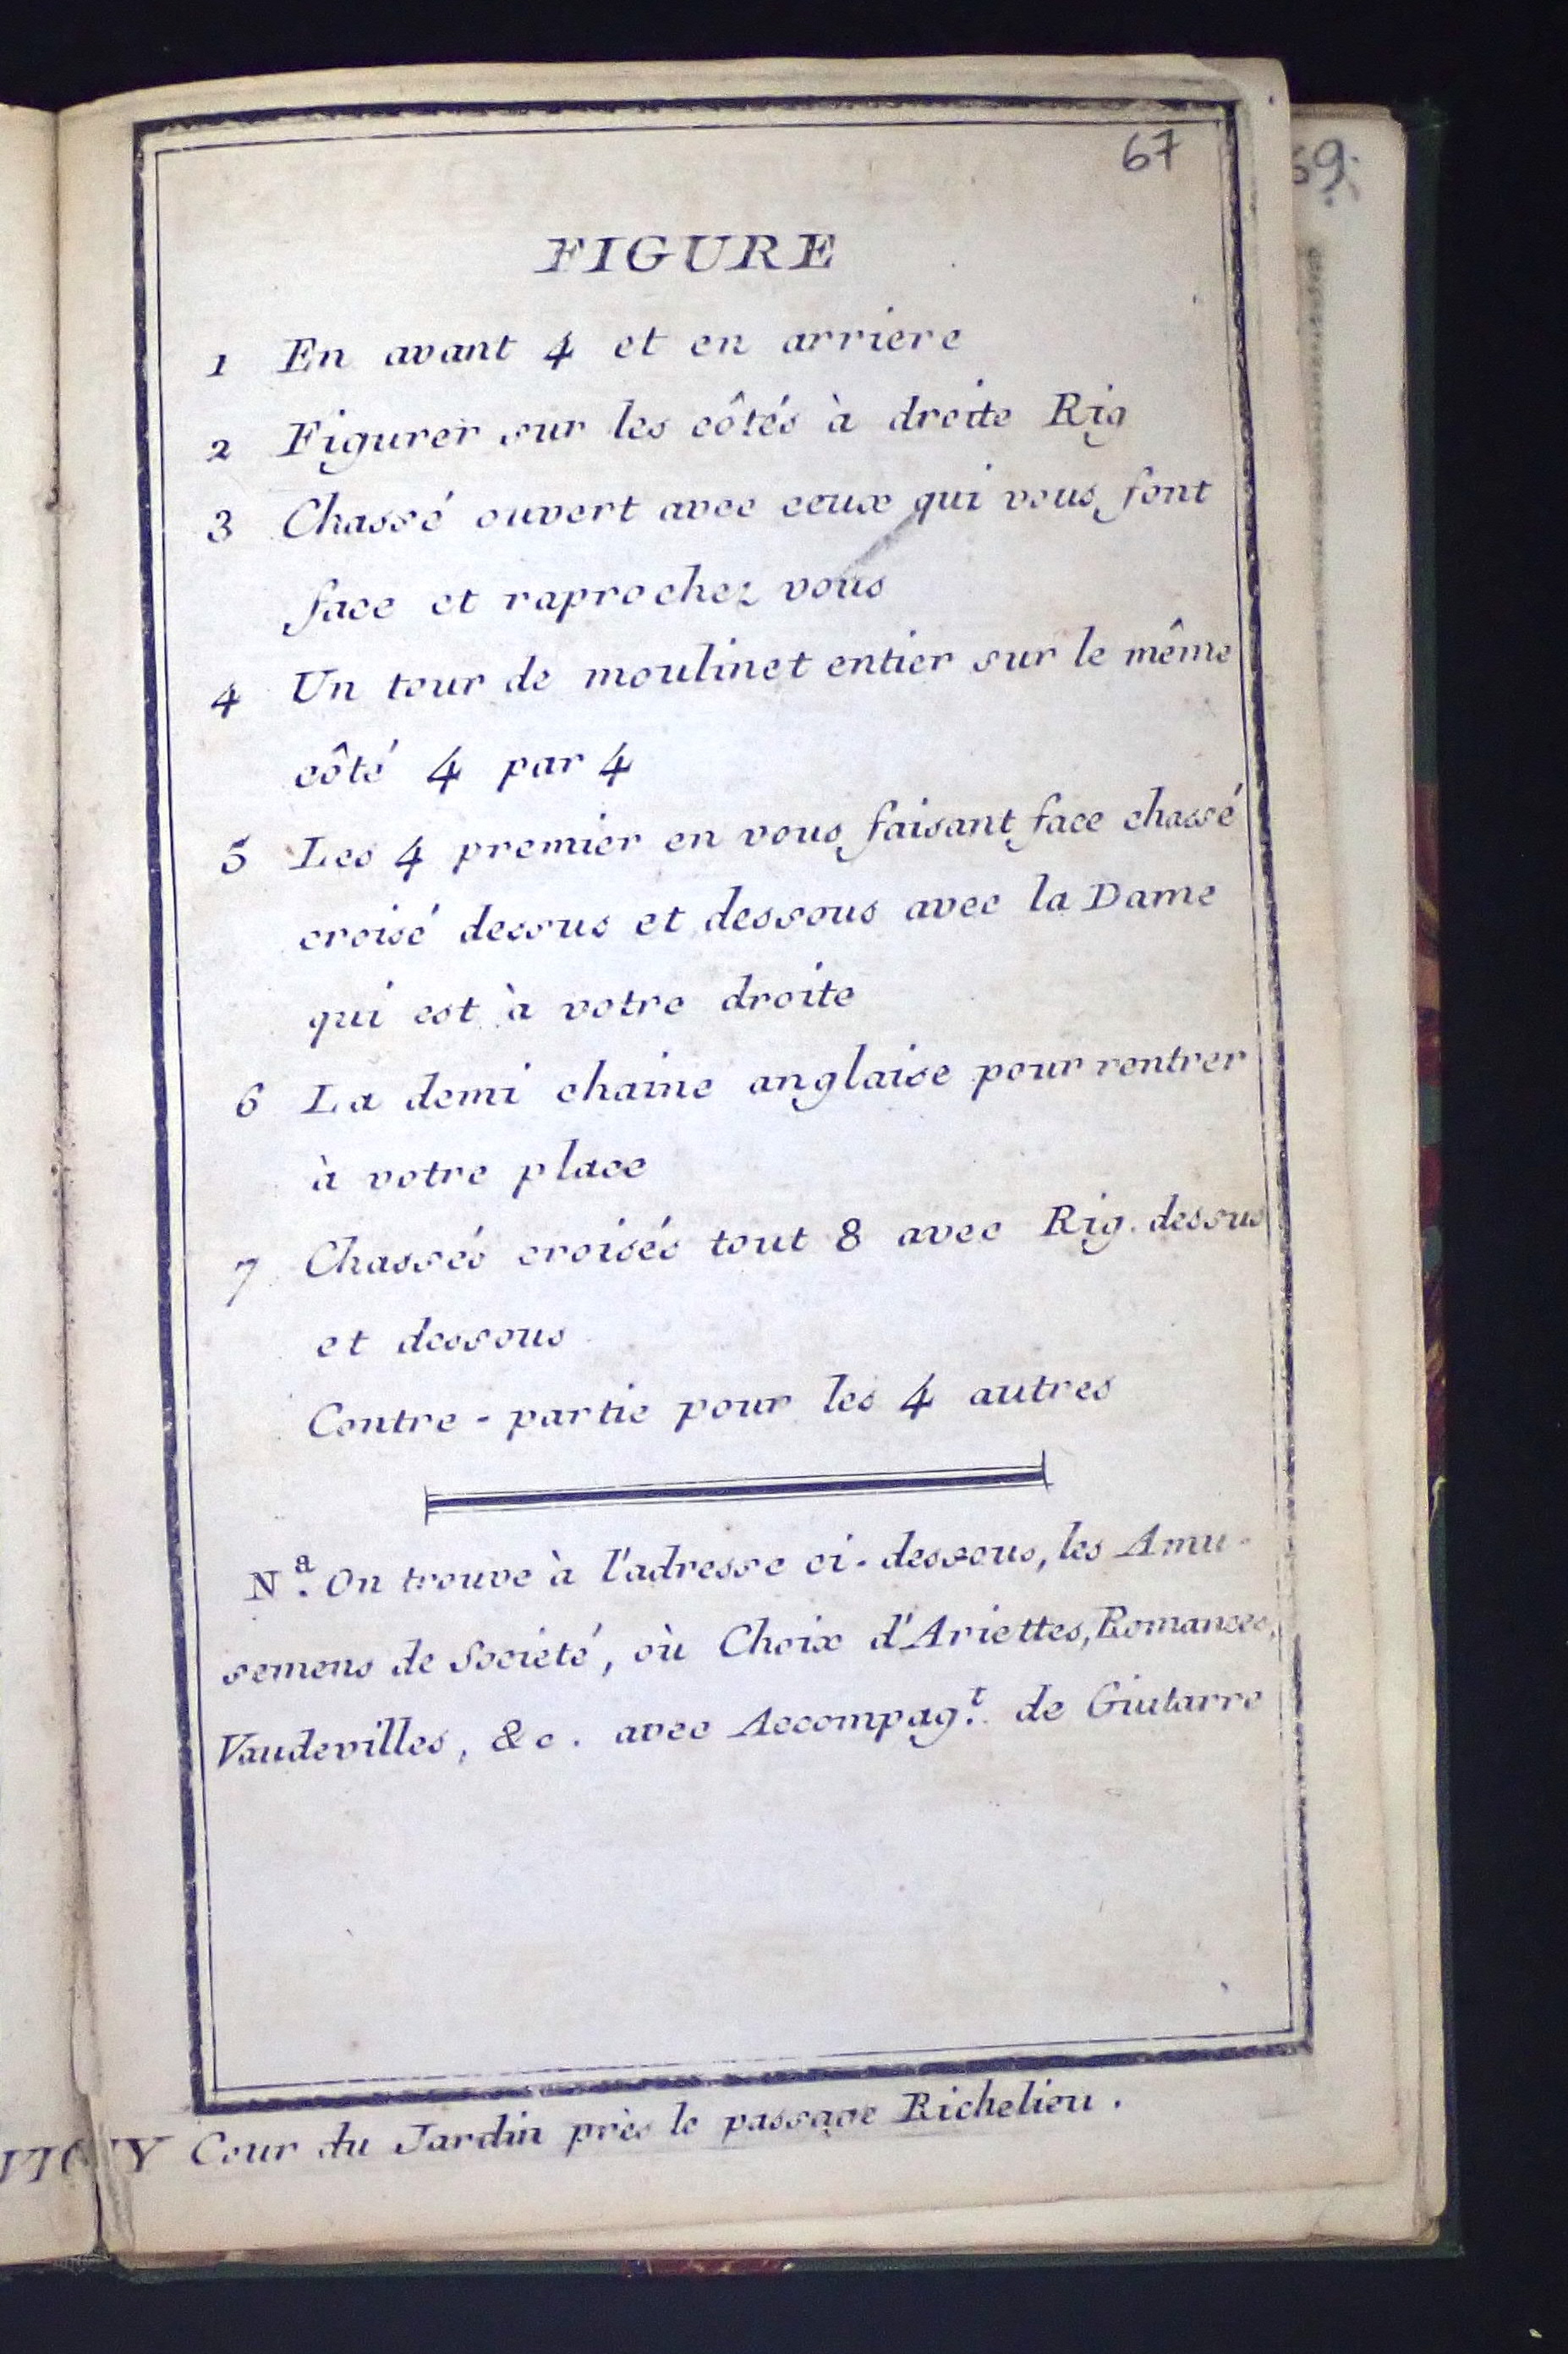 67
69.
FIGURE
1 En avant 4 et en arriere
2 Figurer sur les côtés à droite Rig
3 Chassé ouvert avec ceux qui vous font
face et raprochez vous
4 Un tour de moulinet entier sur le même
côté 4 par 4
5 Les 4 premier en vous faisant face chassé
croisé dessus et dessous avec la Dame
qui est à votre droite
6 La demi chaine anglaise pour rentrer
à votre place
7 Chassés croisés tout 8 avec Rig. dessus
et dessous
Contre-partie pour les 4 autres
N.ª On trouve à l'adresse ci-dessous, les Amu-
semens de Société, où Choix d'Ariettes, Romances,
Vaudevilles, &c. avec Accompag.t de Giutarre
Cour du Jardin près le passage Richelieu.